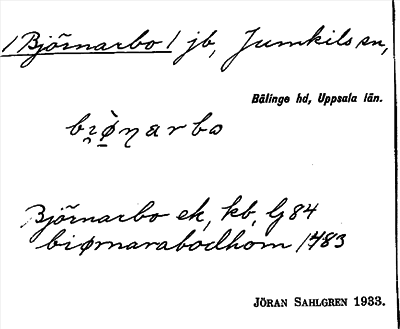 /Björnarbo/ jb, Jumkils sn,
Bälinge hd, Uppsala län.
bı̯ø̠̀n̥arbo
Björnarbo ek, kb, G 84
biørnarabodhom 1483
JÖRAN SAHLGREN 1933.